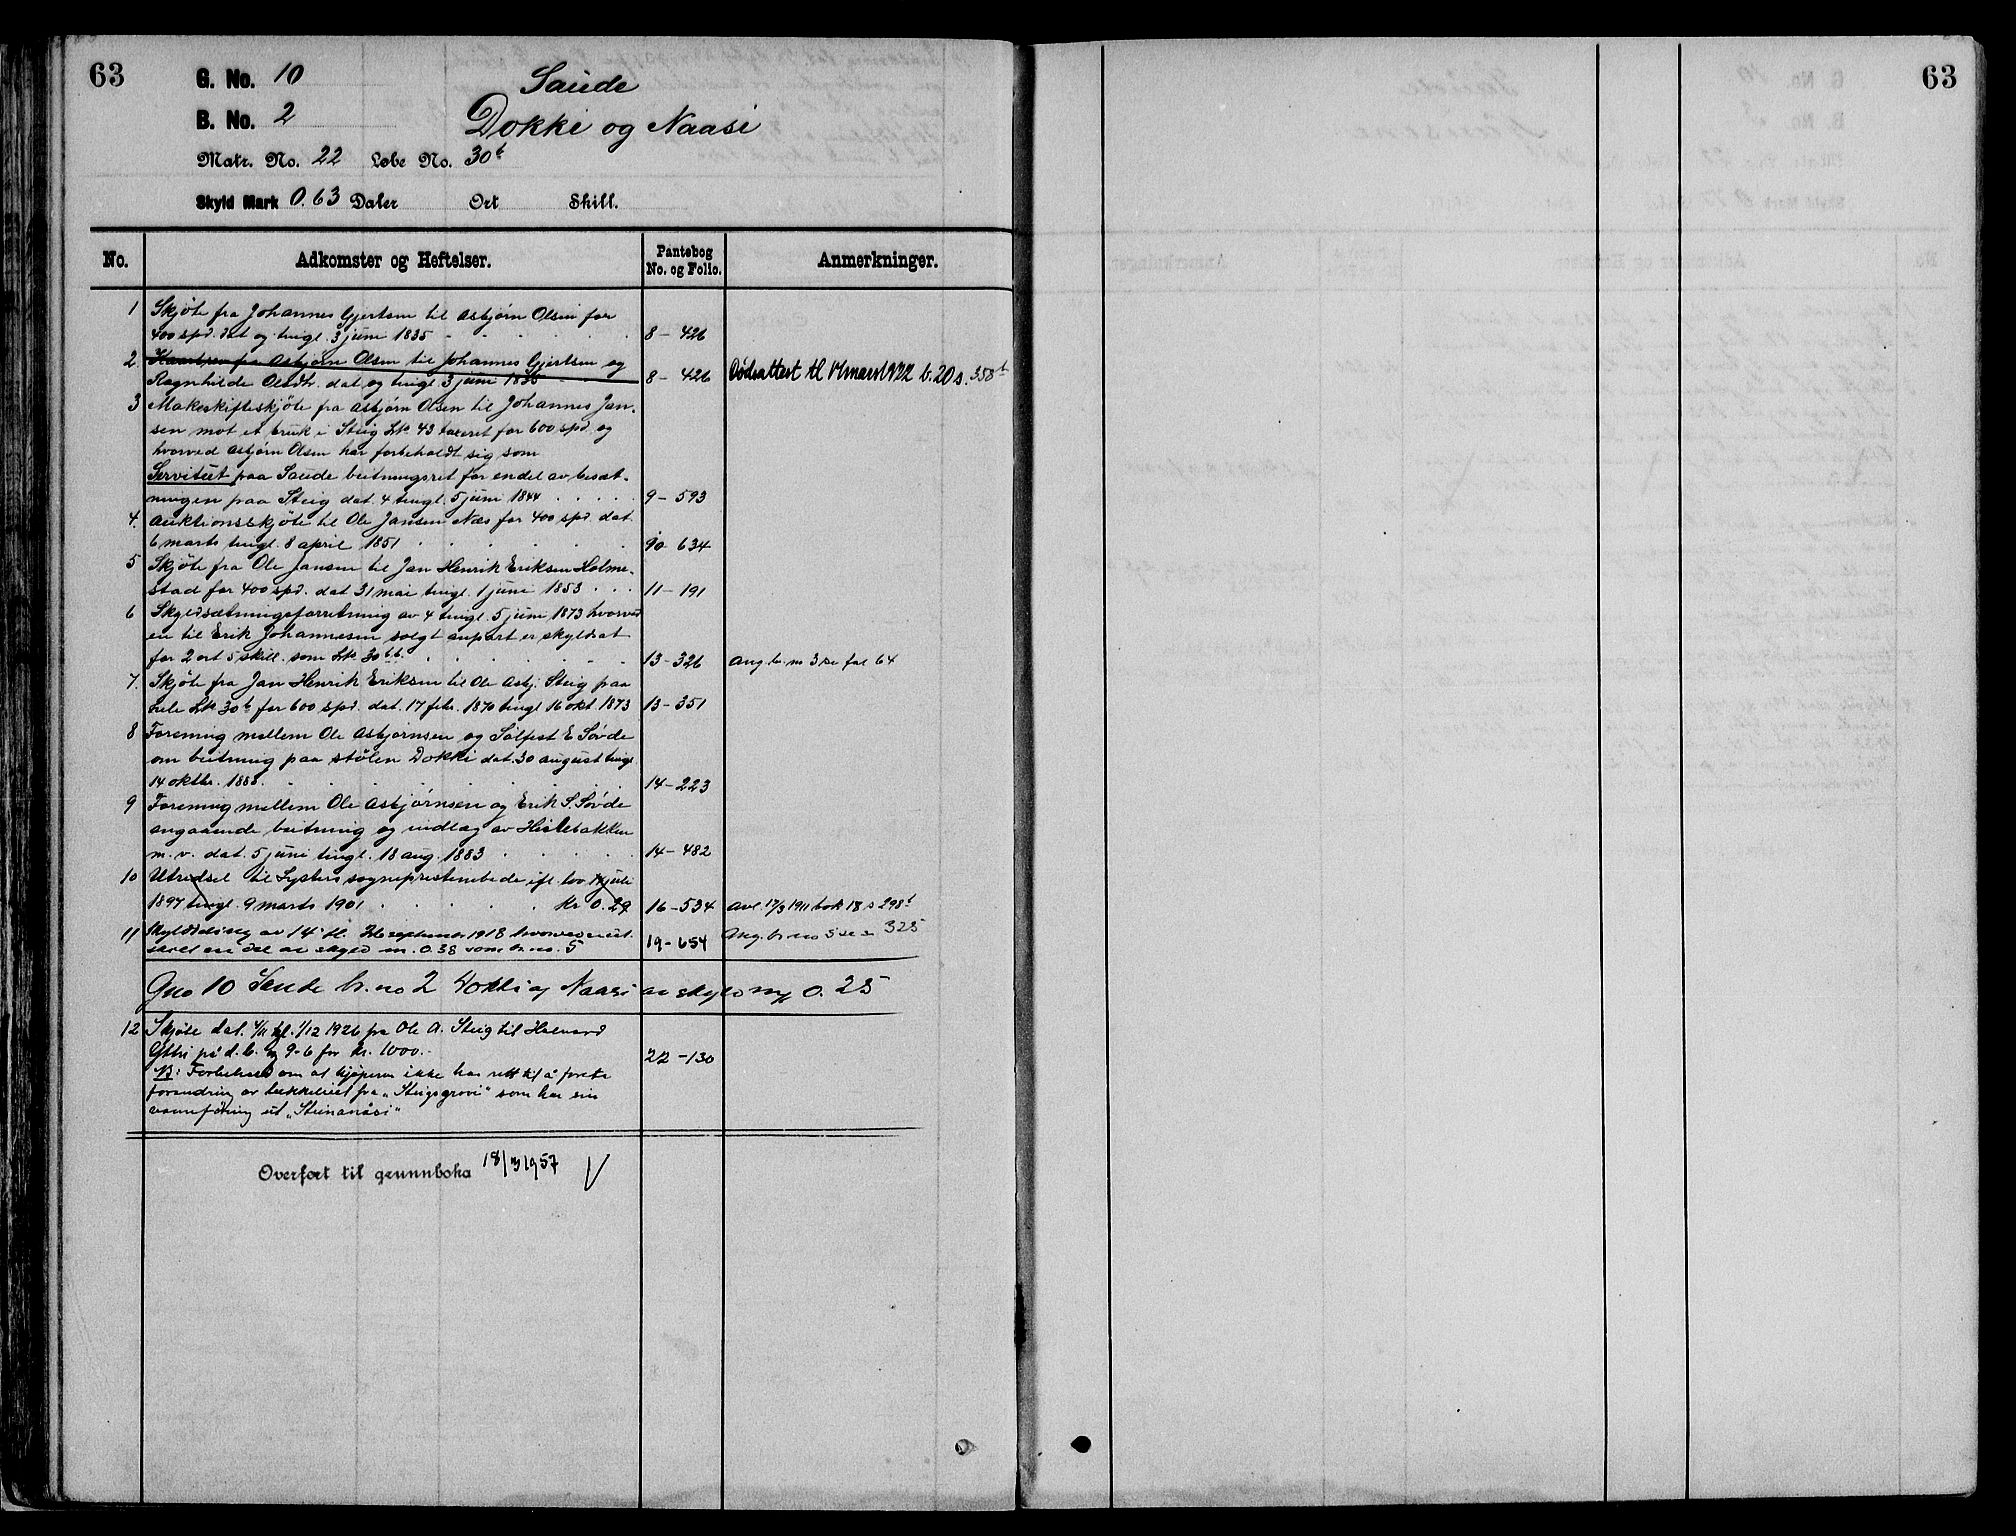 63
G. No. 10 Saude
B. No. 2 Dokki og Naasi
Matr. No. 22 Løbe No. 30b
Skyld Mark 0.63 Daler Ort Skill.
No. Adkomster og Heftelser. Pantebog No. og Folio. Anmerkninger.
1 Skjøte fra Johannes Gjertsen til Asbjørn Olsen for
400 spd. dat og tingl. 3 juni 1835 8 - 426
2. fra Asbjørn Olsen til Johannes Gjertsen og
Ragnhilde Olsdtr. dat. og tingl. 3 juni 1835 8 - 426 Dødsattest tl 14 mars 1922 b. 20 s. 358b
3 Makeskifteskjøte fra Asbjørn Olsen til Johannes Jan-
sen mot et bruk i Steig Lk. 43 taxeret for 600 spd. og
hvorved Asbjørn Olsen har forbeholdt sig som
Servitut paa Saude beitningsret for endel av besæt-
ningen paa Steig dat. 4 tingl. 5 juni 1844 9 - 593
4. Auktionsskjøte til Ole Jansen Næs for 400 spd. dat.
6 marts tingl. 8 april 1851 90 - 634
5 Skjøte fra Ole Jansen til Jan Henrik Eriksen Holme-
stad for 400 spd. dat 31 mai tingl. 1 juni 1853 11 - 191
6 Skyldsætningsforretning av 4 tingl. 5 juni 1873 hvorved
en til Erik Johannesen solgt anpart er skyldsat
for 2 ort 5 skill. som Lk. 30bb. 13 - 326 Ang. br. no 3 se fol 64
7. Skjøte fra Jan Henrik Eriksen til Ole Asbj. Steig paa
hele Lk. 30b for 600 spd. dat. 17 febr. 1870 tingl 16 okt 1873 13 - 351
8 Forening mellem Ole Asbjørnsen og Sølfest E Søvde
om beitning paa stølen Dokki dat. 30 august tingl
14 oktbr. 1885. 14 - 223
9 Forening mellem Ole Asbjørnsen og Erik S. Søvde
angaaende beitning og indlæg av Hislebakken
m.v. dat. 5 juni tingl. 18 aug. 1883 14 - 482
10 Utredsel til Lysters sogneprestembede ifl. lov juli
1897 tingl. 9 marts 1901 Kr 0.29 16 - 534 Avl. 17/3 1911 bok 18 s 298b
11 Skylddeling av 14 tl. 26 september 1918 hvorved er ut-
skilt en del av skyld m. 0.38 som br. no. 5 19 - 654 Ang. br. no 5 se s 325
Gno 10 Saude br. no 2 Dokki og Naasi av skyld mk 0.25
12 Skjøte dat. 4/11 tgl. 1/12 1926 fra Ole A. Steig til Halvard
Yttri på d. b. og 9-6 for kr. 1000.- 22 - 130
NB: Forbehold om at kjøperen ikke har rett til å foreta
forandring av bekkeleiet fra „Steigsgrovi" som har sin
vannføring ut „Steinanåsi"
Overført til grunnboka 18/3 1957 V
63